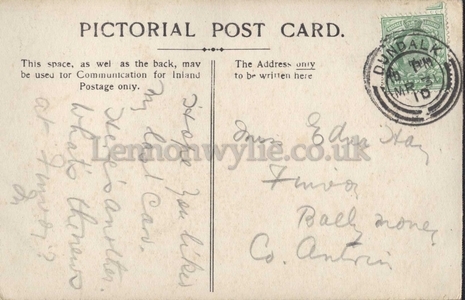 PICTORIAL POST CARD.
This space, as well as the back, may
be used for Communication for Inland
Postage only.
The Address only
to be written here
DUNDALK
PM
MR
10
Hope you liked
my last Card.
Here's another.
What's the news
at Finvoy?
Lennonwylie.co.uk
Miss Edna Hay
Finvoy
Ballymoney
Co. Antrim